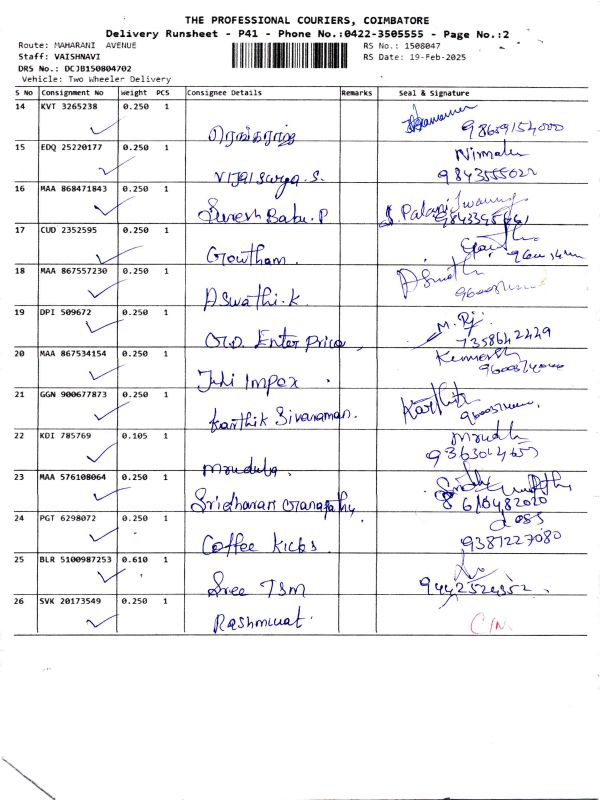 THE PROFESSIONAL COURIERS, COIMBATORE
Delivery Runsheet - P41 - Phone No.:0422-3505555 - Page No.:2
Route: MAHARANI AVENUE
RS No.: 1508047
Staff: VAISHNAVI
RS Date: 19-Feb-2025
DRS No.: DCJB150804702
Vehicle: Two Wheeler Delivery
S No Consignment No Weight PCS Consignee Details Remarks Seal & Signature
14 KVT 3265238 0.250 1
ரெங்கராஜ் 98659154000
15 EDQ 25220177 0.250 PCS 1 Nirmala
Vijai Surya. S. 9843555022
16 MAA 868471843 0.250 1
Suresh Babu. P
17 CUD 2352595 0.250 1
Gowtham.
18 MAA 867557230 0.250 1 Aswathi
Aswathi. K
19 DPI 509672 0.250 1
O.D. Enter Price, 7358642449
20 MAA 867534154 0.250 1
Juli Impex.
21 GGN 900677873 0.250 1 Karthik
Karthik Sivaraman.
22 KDI 785769 0.105 1
Mrudula.
23 MAA 576108064 0.250 1
Sridharan Ganapathy 8610482020
24 PGT 6298072 0.250 1 doss
Coffee Kicks. 9381227080
25 BLR 5100987253 0.610 1
Sree TSM 9442524352.
26 SVK 20173549 0.250 1
Rashmuat.